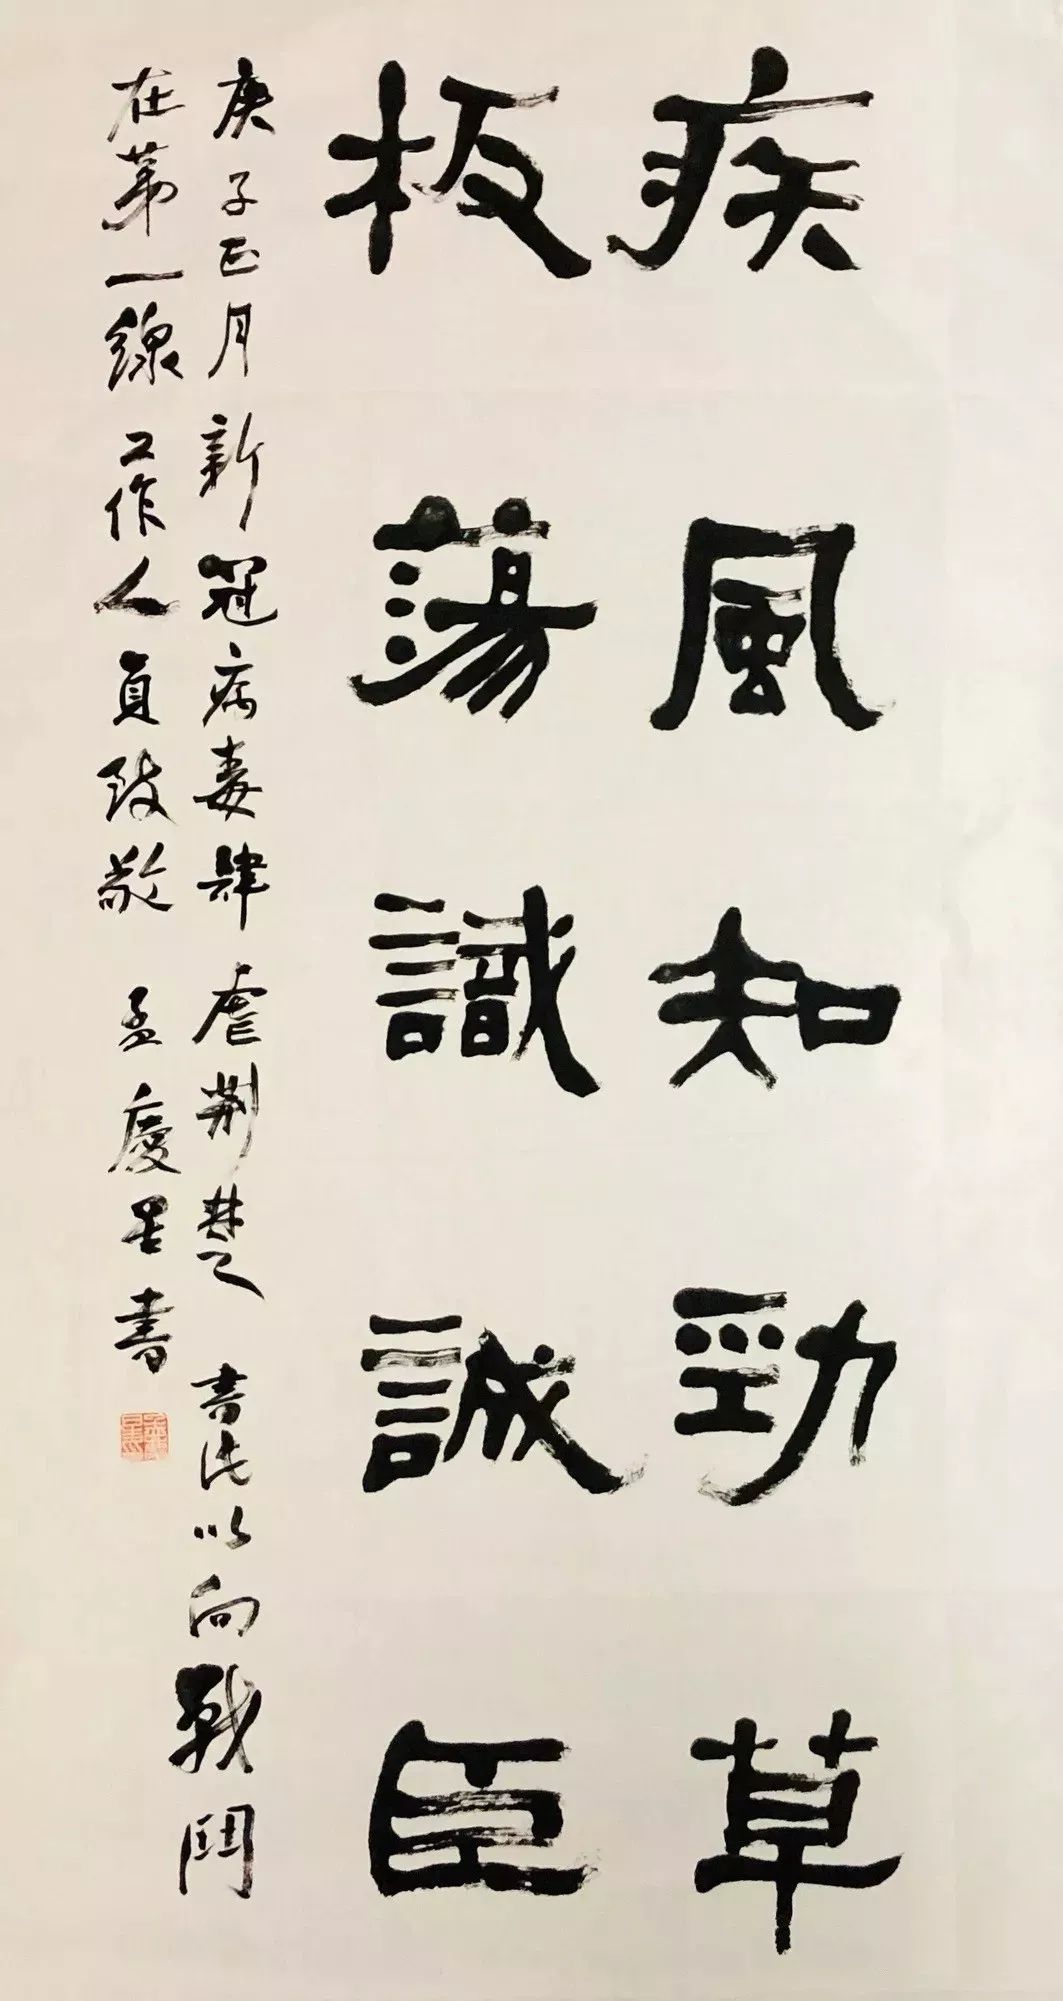 疾風知勁草
板蕩識誠臣
庚子正月新冠病毒肆虐荆楚書此以向戰鬥
在第一線工作人員致敬 孟慶星書